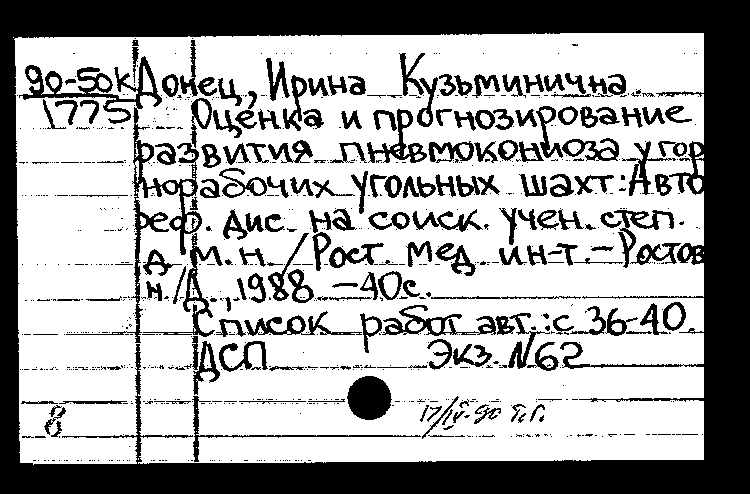 90-50к Донец, Ирина Кузьминична.
1775 Оценка и прогнозирование
развития пневмокониоза у гор
норабочих угольных шахт: Авто
реф. дис. на соиск. учен. степ.
д. м. н. / Рост. мед. ин-т. – Ростов
н./Д., 1988 – 40с.
Список работ авт.: с 36-40.
ДСП Экз. N62
8 17/IV-90